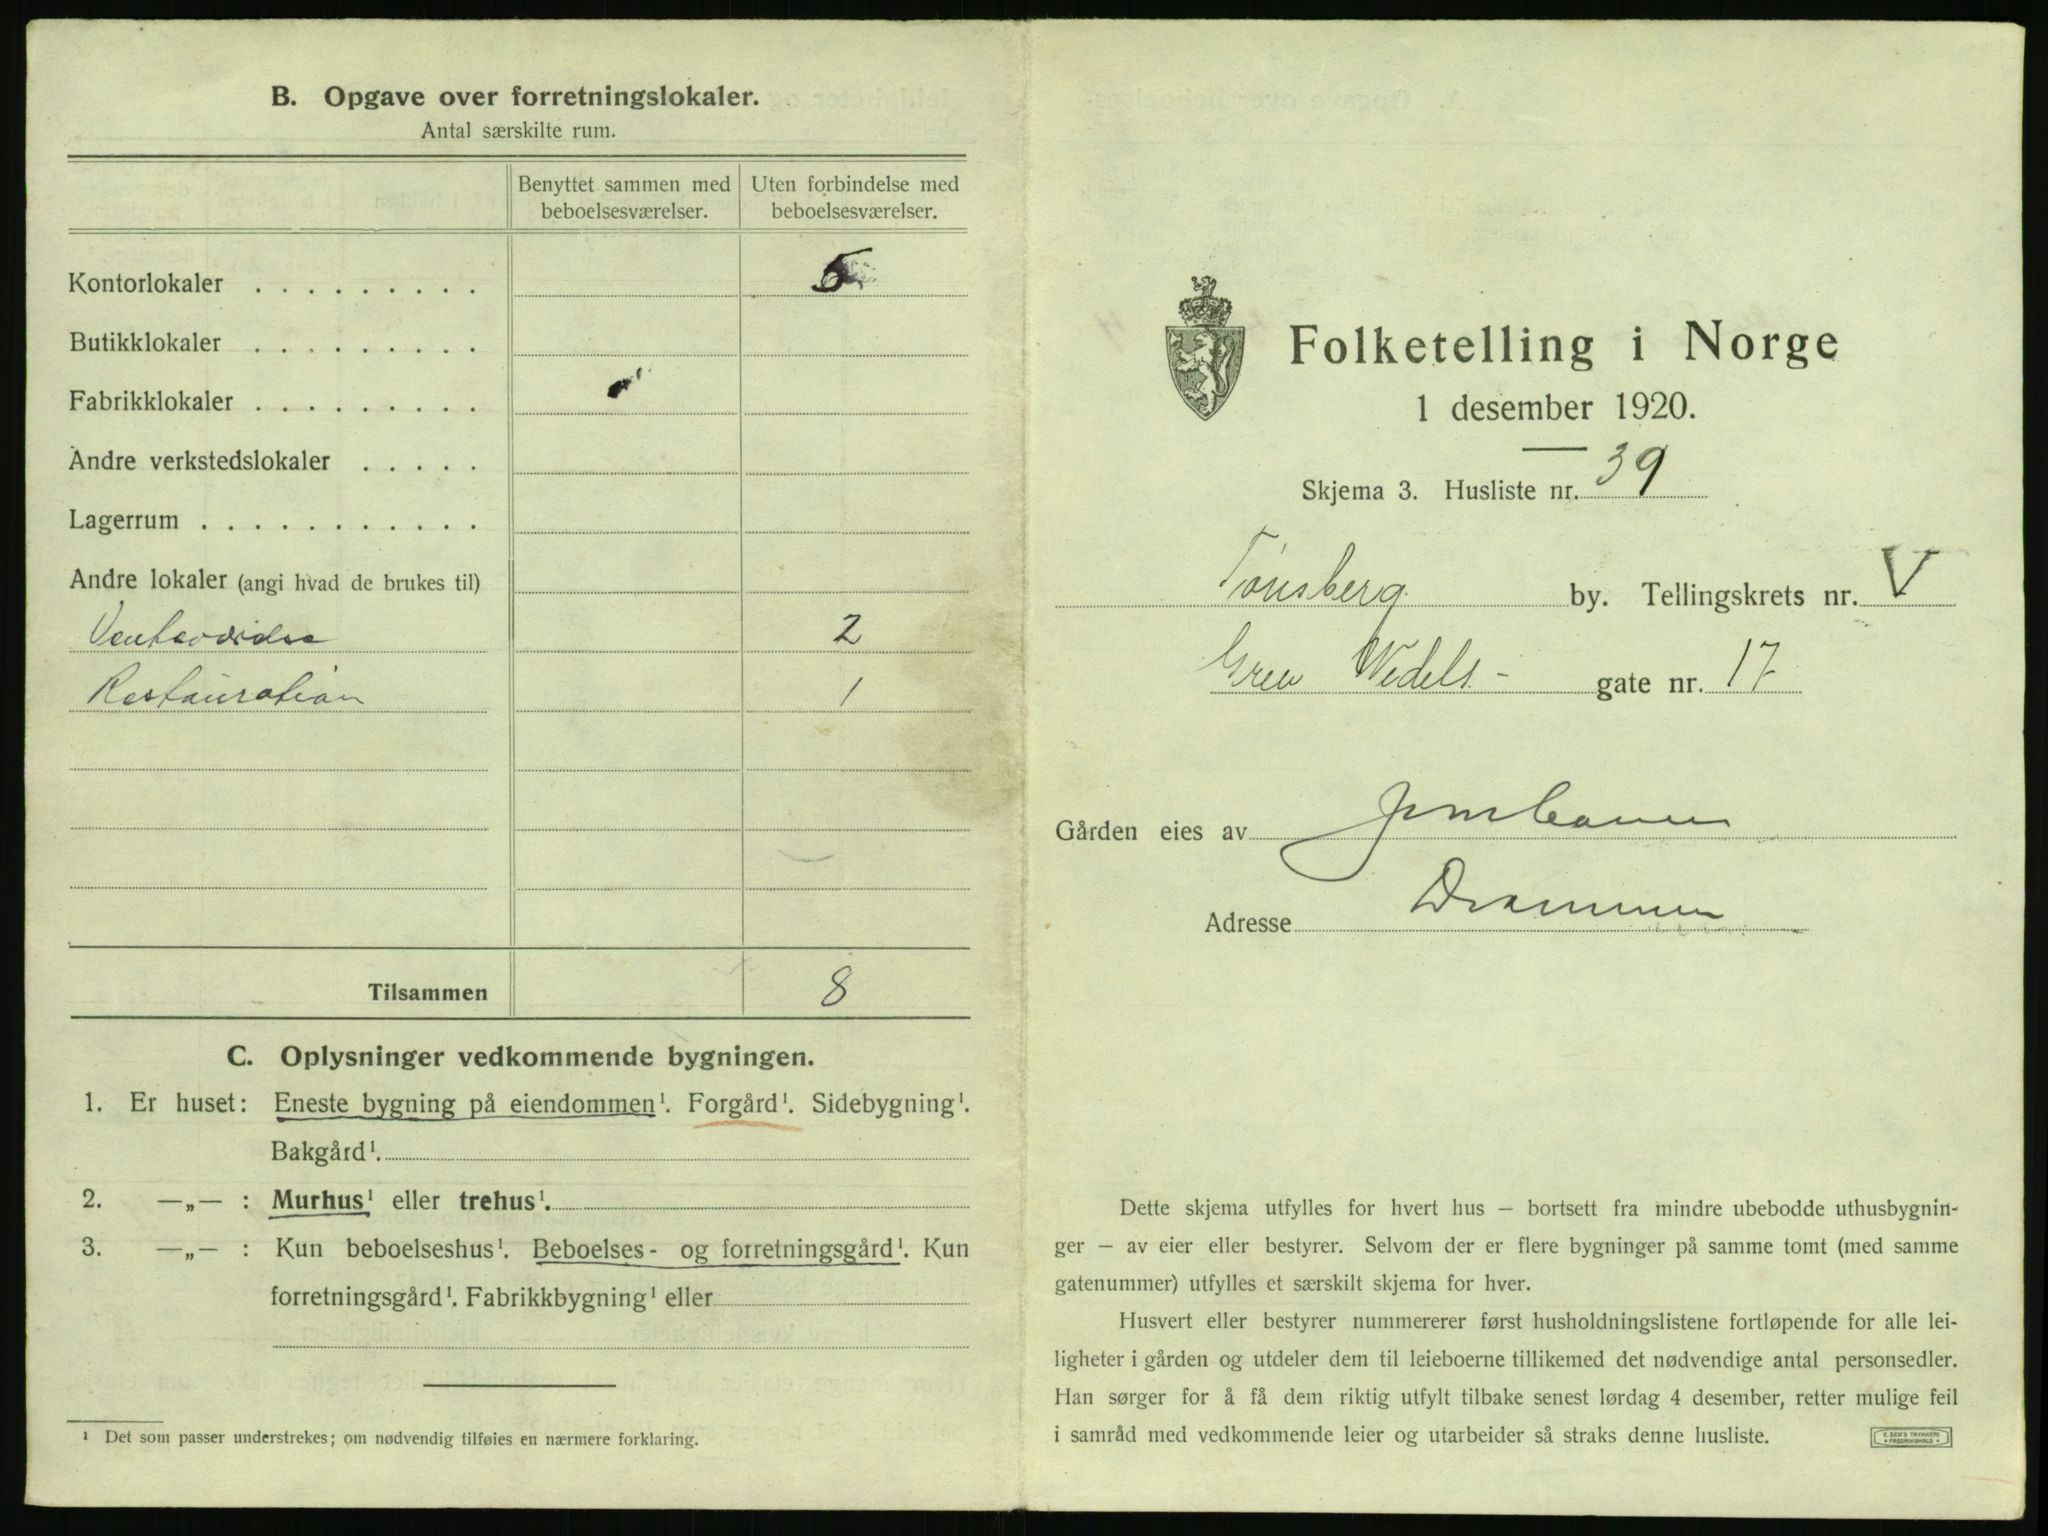 B. Opgave over forretningslokaler.
Antal særskilte rum.
Benyttet sammen med beboelsesværelser.
Uten forbindelse med beboelsesværelser.
Kontorlokaler . . . . . . . . . 5
Butikklokaler . . . . . . . . .
Fabrikklokaler . . . . . . . . .
Andre verkstedslokaler . . . . .
Lagerrum . . . . . . . . . . . .
Andre lokaler (angi hvad de brukes til)
2
Restauration 1
Tilsammen 8
C. Oplysninger vedkommende bygningen.
1. Er huset: Eneste bygning på eiendommen¹. Forgård¹. Sidebygning¹.
Bakgård¹.
2. —„— : Murhus¹ eller trehus¹.
3. —„— : Kun beboelseshus¹. Beboelses- og forretningsgård¹. Kun
forretningsgård¹. Fabrikkbygning¹ eller
¹ Det som passer understrekes; om nødvendig tilføies en nærmere forklaring.
Folketelling i Norge
1 desember 1920.
Skjema 3. Husliste nr. 39
Tønsberg by. Tellingskrets nr. V
Grev Wedels- gate nr. 17
Gården eies av Jernbanen
Adresse Drammen
Dette skjema utfylles for hvert hus – bortsett fra mindre ubebodde uthusbygnin-
ger – av eier eller bestyrer. Selvom der er flere bygninger på samme tomt (med samme
gatenummer) utfylles et særskilt skjema for hver.
Husvert eller bestyrer nummererer først husholdningslistene fortløpende for alle lei-
ligheter i gården og utdeler dem til leieboerne tillikemed det nødvendige antal personsedler.
Han sørger for å få dem riktig utfylt tilbake senest lørdag 4 desember, retter mulige feil
i samråd med vedkommende leier og utarbeider så straks denne husliste.
E. SEM'S TRYKKERI
• FREDRIKSHALD •